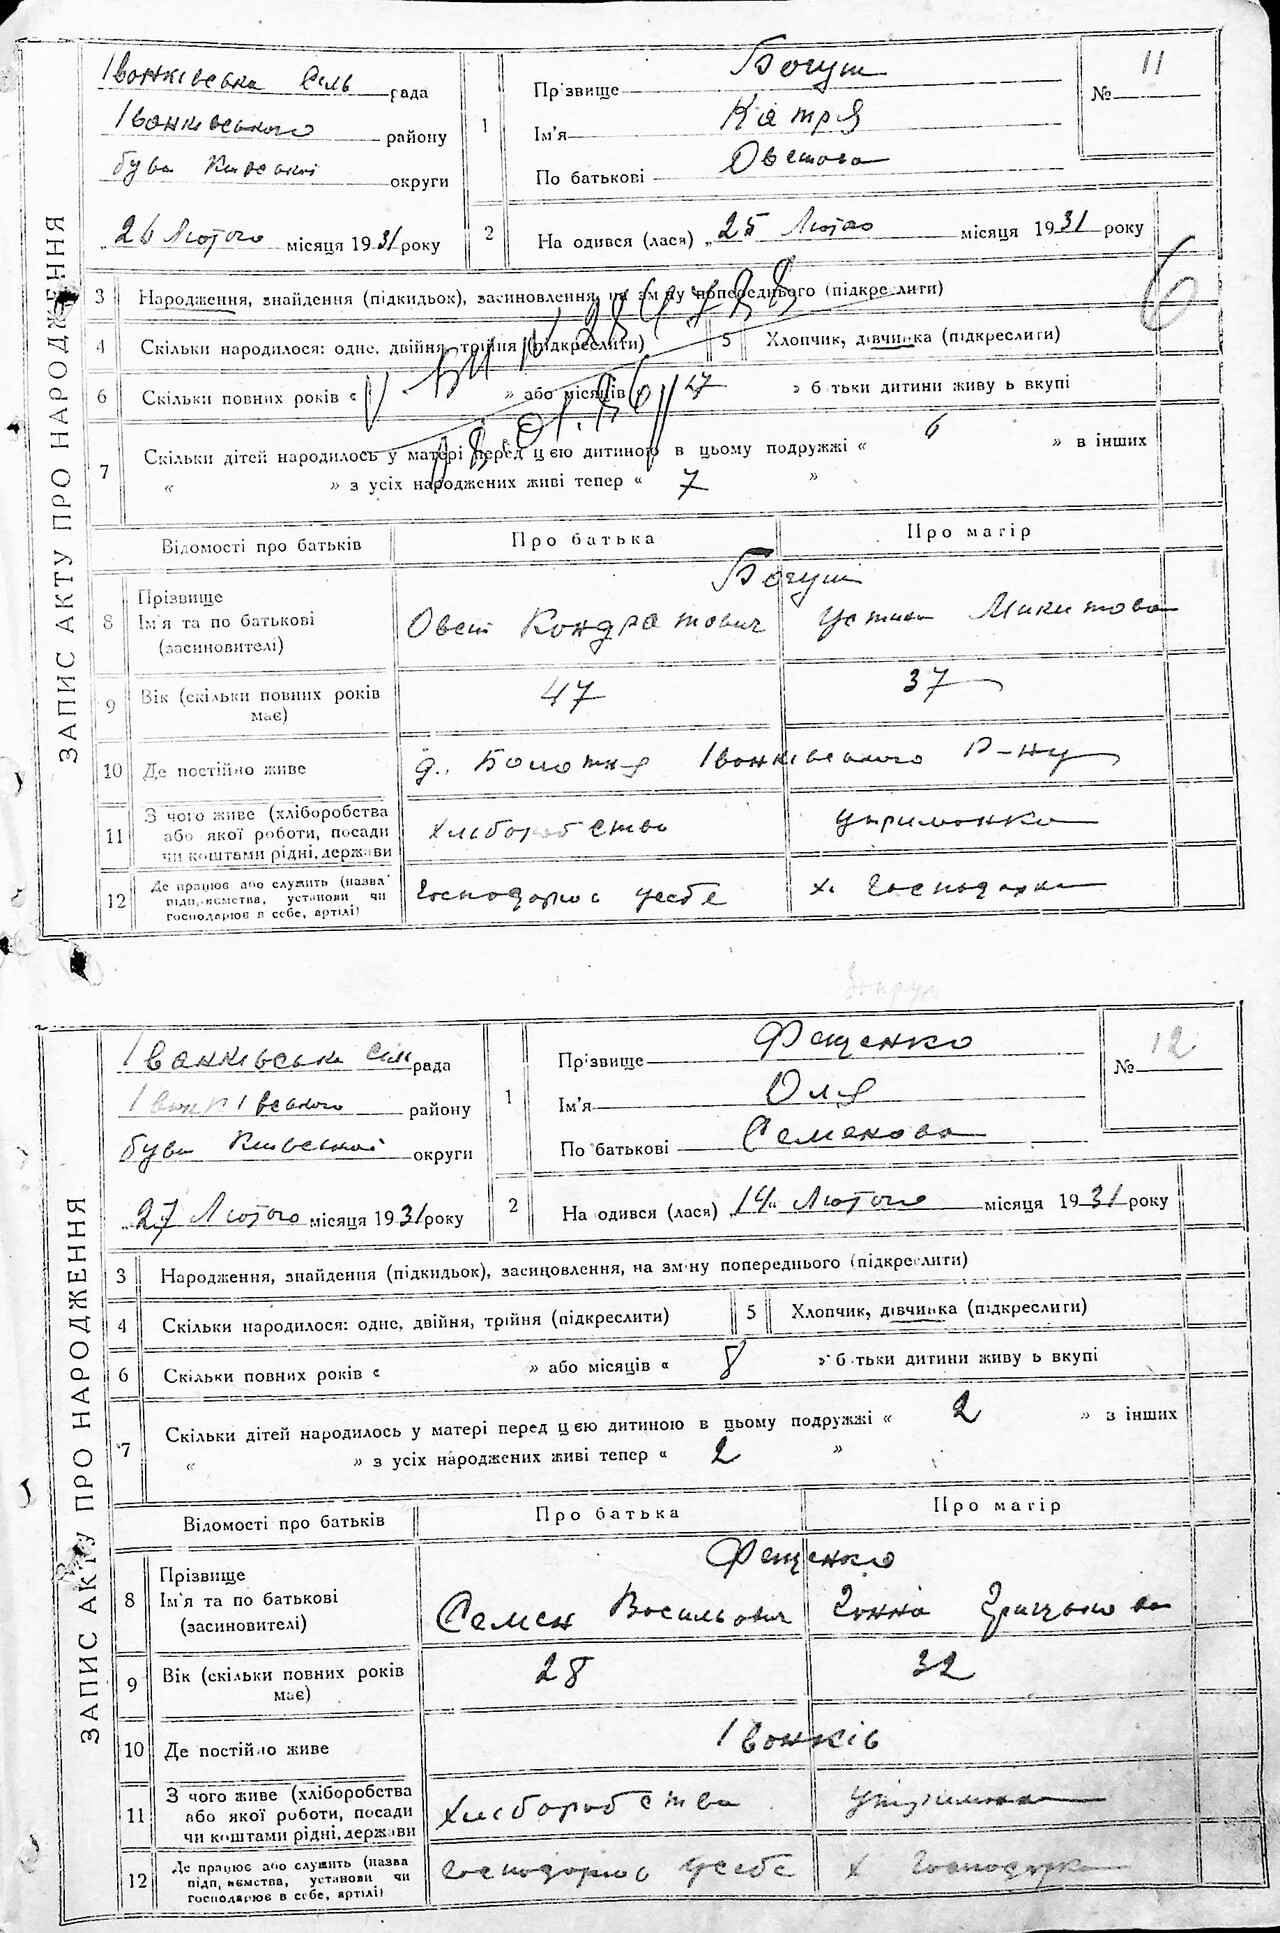 ЗАПИС АКТУ ПРО НАРОДЖЕННЯ
Іванківська сіль рада
Іванківського району
був Київської округи
„26 Лютого місяця 1931 року
1
Прізвище Богуш
Ім'я Катря
По батькові Овсієва
№ 11
2
На одився (лася) „25 Лютого місяця 1931 року
6
3 Народження, знайдення (підкидьок), засиновлення, на зміну попереднього (підкреслити)
4 Скільки народилося: одне, двійня, трійня (підкреслити)
5 Хлопчик, дівчинка (підкреслити)
6 Скільки повних років « » або місяців « 17 » батьки дитини живуть вкупі
7 Скільки дітей народилось у матері перед цією дитиною в цьому подружжі « 6 » в інших
« » з усіх народжених живі тепер « 7 »
Відомості про батьків
Про батька
Про матір
8 Прізвище
Ім'я та по батькові
(засиновителі)
Богуш
Овсій Кондратович
Устина Микитова
9 Вік (скільки повних років має)
47
37
10 Де постійно живе
д. Болотня Іванківського Р-ну
11 З чого живе (хліборобства
або якої роботи, посади
чи коштами рідні, держави
хліборобство
утриманка
12 Де працює або служить (назва
підприємства, установи чи
господарює в себе, артілі)
господарює усебе
х. господарка
ЗАПИС АКТУ ПРО НАРОДЖЕННЯ
Іванківська сіл рада
Іванківського району
був Київської округи
„27 Лютого місяця 1931 року
1
Прізвище Фещенко
Ім'я Оля
По батькові Семенова
№ 12
2
На одився (лася) „14“ Лютого місяця 1931 року
3 Народження, знайдення (підкидьок), засиновлення, на зміну попереднього (підкреслити)
4 Скільки народилося: одне, двійня, трійня (підкреслити)
5 Хлопчик, дівчинка (підкреслити)
6 Скільки повних років « » або місяців « 8 » батьки дитини живуть вкупі
7 Скільки дітей народилось у матері перед цією дитиною в цьому подружжі « 2 » з інших
« » з усіх народжених живі тепер « 2 »
Відомості про батьків
Про батька
Про матір
8 Прізвище
Ім'я та по батькові
(засиновителі)
Фещенко
Семен Васильович
Ганна Грицькова
9 Вік (скільки повних років має)
28
32
10 Де постійно живе
Іванків
11 З чого живе (хліборобства
або якої роботи, посади
чи коштами рідні, держави
хліборобство
утриманка
12 Де працює або служить (назва
підприємства, установи чи
господарює в себе, артілі)
господарює усебе
х господарка